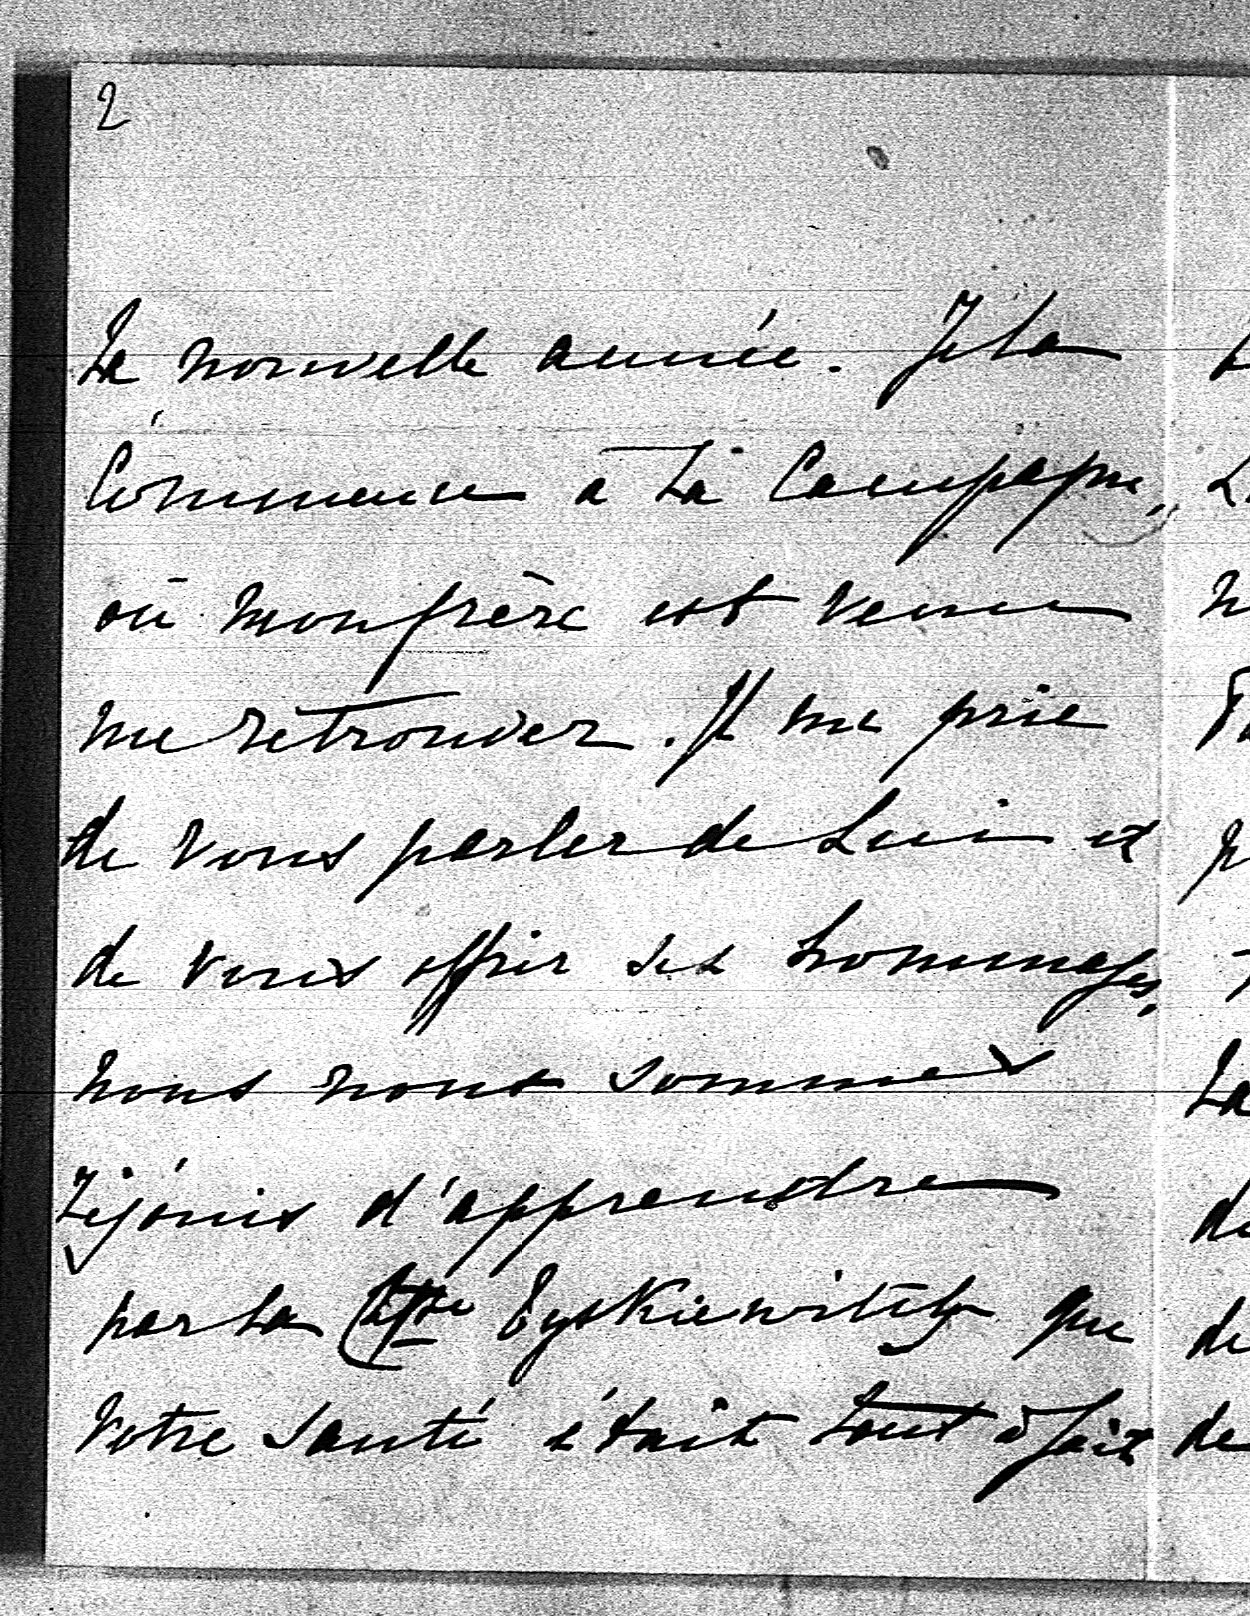 2
La nouvelle année. Je la
Commence à la Campagne,
où mon frère est venu
me retrouver. Il me prie
de vous parler de Lui et
de vous offrir ses hommages.
nous nous sommes
réjouis d'apprendre
par la Ctsse que
votre Santé était tout à fait